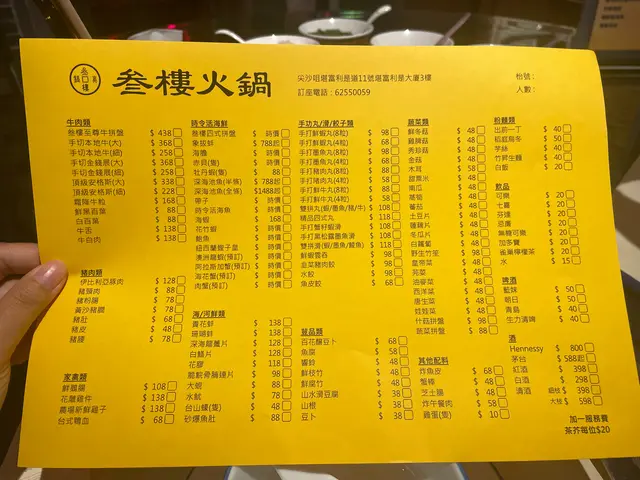 叁樓火鍋
尖沙咀堪富利是道11號堪富利是大廈3樓
訂座電話：62550059
枱號：
人數：
牛肉類
叁樓至尊牛拼盤 $ 438
手切本地牛(大) $ 368
手切本地牛(細) $ 258
手切金錢展(大) $ 368
手切金錢展(細) $ 258
頂級安格斯(大) $ 338
頂級安格斯(細) $ 228
霜降牛粒 $ 168
鮮黑百葉 $ 88
白百葉 $ 88
牛舌 $ 138
牛白肉 $ 138
豬肉類
伊比利亞豚肉 $ 128
豬頸肉 $ 88
豬粉腸 $ 78
黃沙豬膶 $ 78
豬肚 $ 68
豬皮 $ 48
豬腰 $ 78
家禽類
鮮鵝腸 $ 108
花雕雞件 $ 138
農場新鮮雞子 $ 138
台式鴨血 $ 68
時令活海鮮
叁樓四式拼盤 $ 時價
象拔蚌 $ 788起
海膽 $ 時價
赤貝(隻) $ 時價
牡丹蝦(隻) $ 88
深海池魚(半條) $ 788起
深海池魚(全條) $1488起
帶子 $ 時價
時令活海魚 $ 時價
海蝦 $ 168
花竹蝦 $ 時價
鮑魚 $ 時價
紐西蘭鰻子皇 $ 時價
澳洲龍蝦(預訂) $ 時價
阿拉斯加蟹(預訂) $ 時價
海花蟹(預訂) $ 時價
肉蟹(預訂) $ 時價
海/河鮮類
黃花蚌 $ 138
珊瑚蚌 $ 138
深海龍躉片 $ 128
白鱔片 $ 128
花膠 $ 118
脆鯇骨腩連片 $ 98
大蜆 $ 88
水魷 $ 78
台山蠔(隻) $ 48
砂爆魚肚 $ 88
手功丸/滑/餃子類
手打鮮蝦丸(8粒) $ 98
手打鮮蝦丸(4粒) $ 68
手打墨魚丸(8粒) $ 98
手打墨魚丸(4粒) $ 68
手打豬肉丸(8粒) $ 98
手打豬肉丸(4粒) $ 58
手打鮮牛丸(8粒) $ 98
手打鮮牛丸(4粒) $ 58
雙拼丸(蝦/墨魚/豬/牛) $ 108
精品四式丸 $ 118
手打蟹籽蝦滑 $ 108
手打黑松露墨魚滑 $ 108
雙拼滑(蝦/墨魚/鯪魚) $ 118
鮮蝦雲吞 $ 98
韭菜豬肉餃 $ 98
水餃 $ 98
魚皮餃 $ 68
荳品類
百花釀豆卜 $ 68
魚腐 $ 58
響鈴 $ 48
鮮枝竹 $ 48
鮮腐竹 $ 48
山水滑豆腐 $ 38
山根 $ 38
豆卜 $ 38
蔬菜類
鮮冬菇 $ 48
雞脾菇 $ 48
秀珍菇 $ 48
金菇 $ 48
木耳 $ 58
甜粟米 $ 48
南瓜 $ 48
蒟蒻 $ 48
蕃茄 $ 48
土豆片 $ 48
蓮藕片 $ 48
冬瓜片 $ 48
白蘿蔔 $ 48
野生竹笙 $ 98
皇帝菜 $ 48
芫荽 $ 48
油麥菜 $ 48
西洋菜 $ 48
唐生菜 $ 48
娃娃菜 $ 48
什菇拼盤 $ 98
蔬菜拼盤 $ 88
其他配料
炸魚皮 $ 68
蟹棒 $ 48
芝士腸 $ 48
炸午餐肉 $ 58
雞蛋(隻) $ 10
粉麵類
出前一丁 $ 40
稻庭烏冬 $ 50
芋絲 $ 40
竹昇生麵 $ 40
白飯 $ 20
飲品
可樂 $ 20
七喜 $ 20
芬達 $ 20
忌廉 $ 20
無糖可樂 $ 20
加多寶 $ 20
雀巢檸檬茶 $ 20
水 $ 15
啤酒
藍妹 $ 50
朝日 $ 50
青島 $ 40
生力清啤 $ 40
酒
Hennessy $ 800
茅台 $ 588起
紅酒 $ 398
白酒 $ 298
清酒 細枝 $ 398
大枝 $ 598
加一服務費
茶芥每位$20